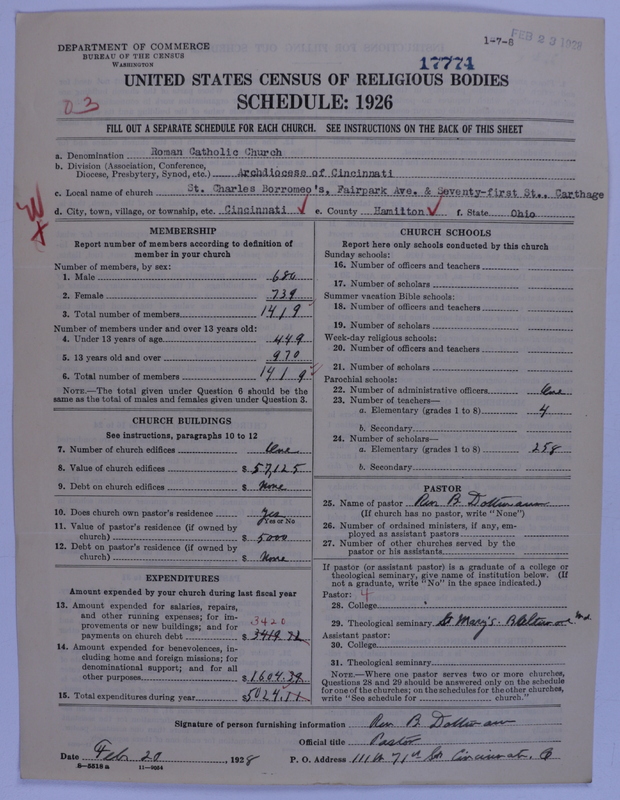 1-7-8
FEB 23 1928
DEPARTMENT OF COMMERCE
BUREAU OF THE CENSUS
WASHINGTON
17774
UNITED STATES CENSUS OF RELIGIOUS BODIES
SCHEDULE: 1926
03
FILL OUT A SEPARATE SCHEDULE FOR EACH CHURCH. SEE INSTRUCTIONS ON THE BACK OF THIS SHEET
a. Denomination Roman Catholic Church
b. Division (Association, Conference,
Diocese, Presbytery, Synod, etc.) Archdiocese of Cincinnati
c. Local name of church St. Charles Borromeo's, Fairpark Ave. & Seventy-first St., Carthage
d. City, town, village, or township, etc. Cincinnati e. County Hamilton f. State Ohio
MEMBERSHIP
Report number of members according to definition of
member in your church
Number of members, by sex:
1. Male 680
2. Female 739
3. Total number of members 1419
Number of members under and over 13 years old:
4. Under 13 years of age 449
5. 13 years old and over 970
6. Total number of members 1419
NOTE.—The total given under Question 6 should be
same as the total of males and females given under Question 3.
CHURCH BUILDINGS
See instructions, paragraphs 10 to 12
7. Number of church edifices One
8. Value of church edifices $ 57,125
9. Debt on church edifices $ None
10. Does church own pastor's residence Yes
Yes or No
11. Value of pastor's residence (if owned by
church) $ 5000
12. Debt on pastor's residence (if owned by
church) $ None
EXPENDITURES
Amount expended by your church during last fiscal year
13. Amount expended for salaries, repairs,
and other running expenses; for im-
provements or new buildings; and for 3420
payments on church debt $ 3419.72
14. Amount expended for benevolences, in-
cluding home and foreign missions; for
denominational support; and for all
other purposes $ 1604.39
15. Total expenditures during year $ 5024.11
CHURCH SCHOOLS
Report here only schools conducted by this church
Sunday schools:
16. Number of officers and teachers
17. Number of scholars
Summer vacation Bible schools:
18. Number of officers and teachers
19. Number of scholars
Week-day religious schools:
20. Number of officers and teachers
21. Number of scholars
Parochial schools:
22. Number of administrative officers One
23. Number of teachers—
a. Elementary (grades 1 to 8) 4
b. Secondary
24. Number of scholars—
a. Elementary (grades 1 to 8) 258
b. Secondary
PASTOR
25. Name of pastor Rev. B Dottmann
(If church has no pastor, write "None")
26. Number of ordained ministers, if any, em-
ployed as assistant pastors
27. Number of other churches served by the
pastor or his assistants
If pastor (or assistant pastor) is a graduate of a college or
theological seminary, give name of institution below. (If
not a graduate, write "No" in the space indicated.)
Pastor: 4
28. College
29. Theological seminary St Mary's. Baltimore Md.
Assistant pastor:
30. College
31. Theological seminary
NOTE.—Where one pastor serves two or more churches,
Questions 28 and 29 should be answered only on the schedule
for one of the churches; on the schedules for the other churches,
write "See schedule for church."
Signature of person furnishing information Rev. B Dottmann
Official title Pastor
Date Feb 20, 1928 P. O. Address 111 W 71st St Cincinnati, O
8—5518 a 11—9064